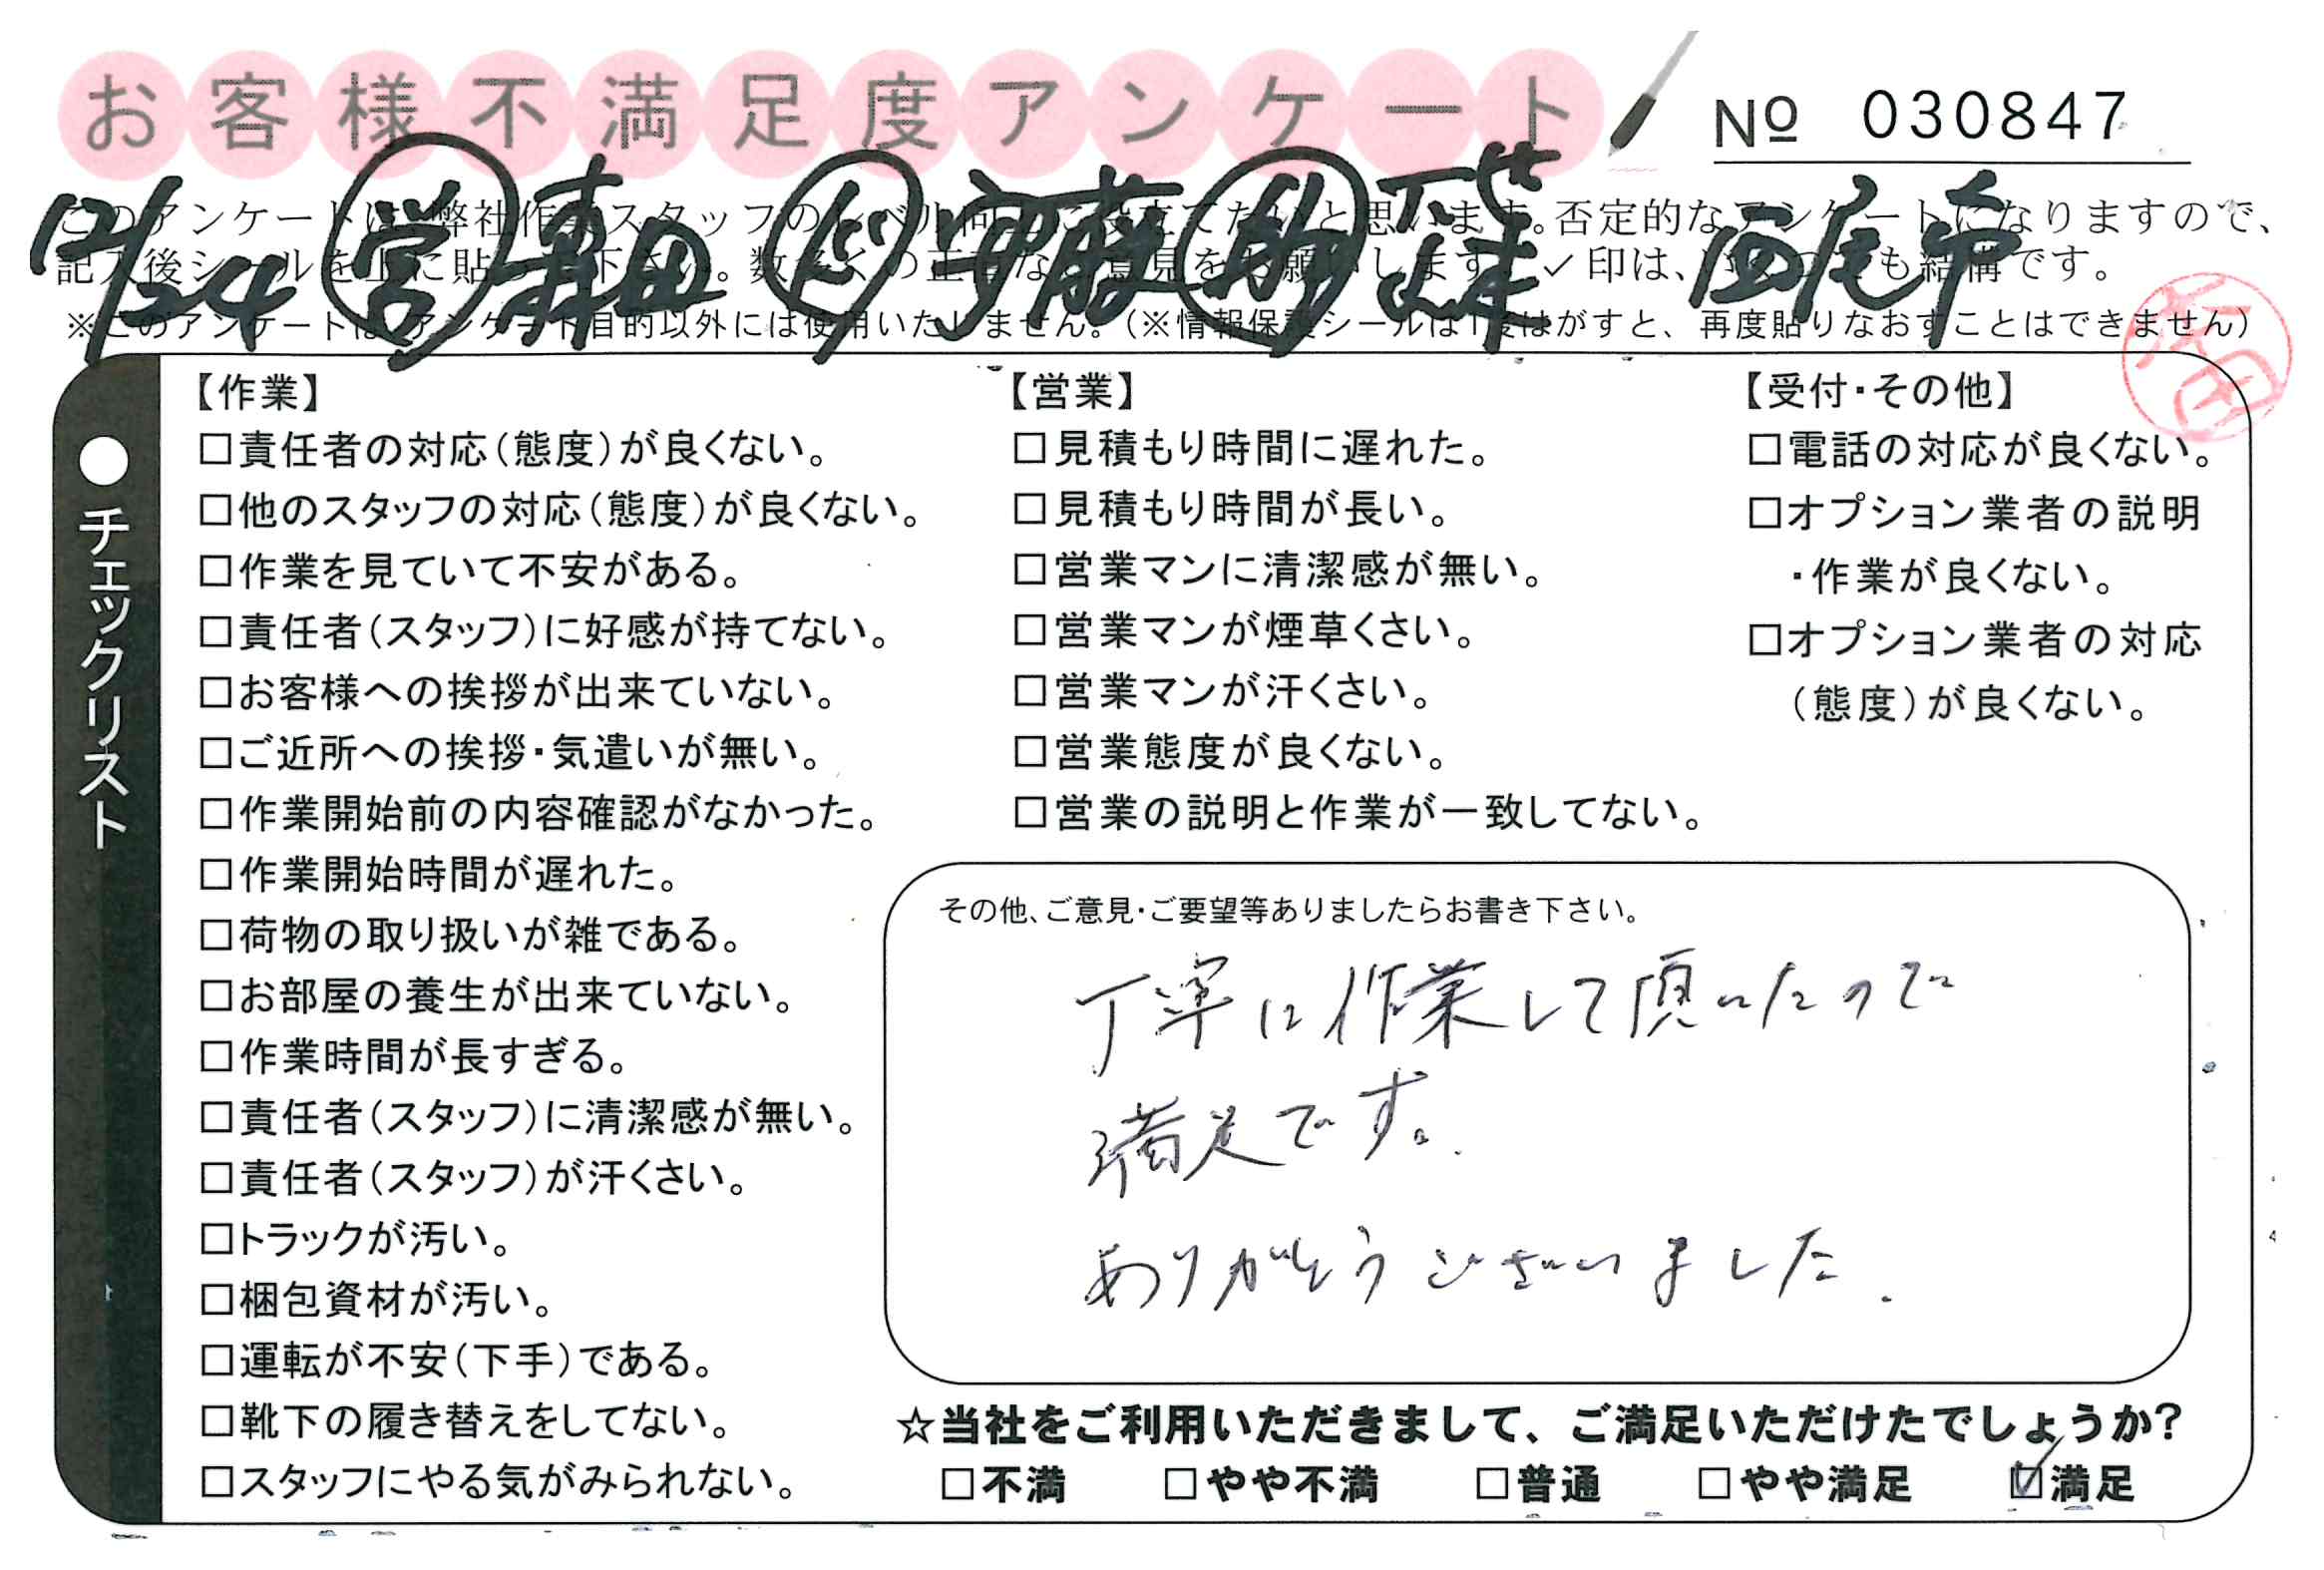 お客様不満足度アンケート
№ 030847
12/24 営 森田 ド 安藤 助 西尾市
このアンケートは、弊社作業スタッフのレベル向上に役立てたいと思います。否定的なアンケートになりますので、
記入後シールを上に貼って下さい。数多くの正直なご意見をお願いします。✓印は、いくつでも結構です。
※このアンケートは、アンケート目的以外には使用いたしません。（※情報保護シールは1度はがすと、再度貼りなおすことはできません）
●チェックリスト
【作業】
□責任者の対応（態度）が良くない。
□他のスタッフの対応（態度）が良くない。
□作業を見ていて不安がある。
□責任者（スタッフ）に好感が持てない。
□お客様への挨拶が出来ていない。
□ご近所への挨拶・気遣いが無い。
□作業開始前の内容確認がなかった。
□作業開始時間が遅れた。
□荷物の取り扱いが雑である。
□お部屋の養生が出来ていない。
□作業時間が長すぎる。
□責任者（スタッフ）に清潔感が無い。
□責任者（スタッフ）が汗くさい。
□トラックが汚い。
□梱包資材が汚い。
□運転が不安（下手）である。
□靴下の履き替えをしてない。
□スタッフにやる気がみられない。
【営業】
□見積もり時間に遅れた。
□見積もり時間が長い。
□営業マンに清潔感が無い。
□営業マンが煙草くさい。
□営業マンが汗くさい。
□営業態度が良くない。
□営業の説明と作業が一致してない。
【受付・その他】
□電話の対応が良くない。
□オプション業者の説明
・作業が良くない。
□オプション業者の対応
（態度）が良くない。
その他、ご意見・ご要望等ありましたらお書き下さい。
丁寧に作業して頂いたので
満足です。
ありがとうございました.
☆当社をご利用いただきまして、ご満足いただけたでしょうか?
□不満 □やや不満 □普通 □やや満足 ☑満足